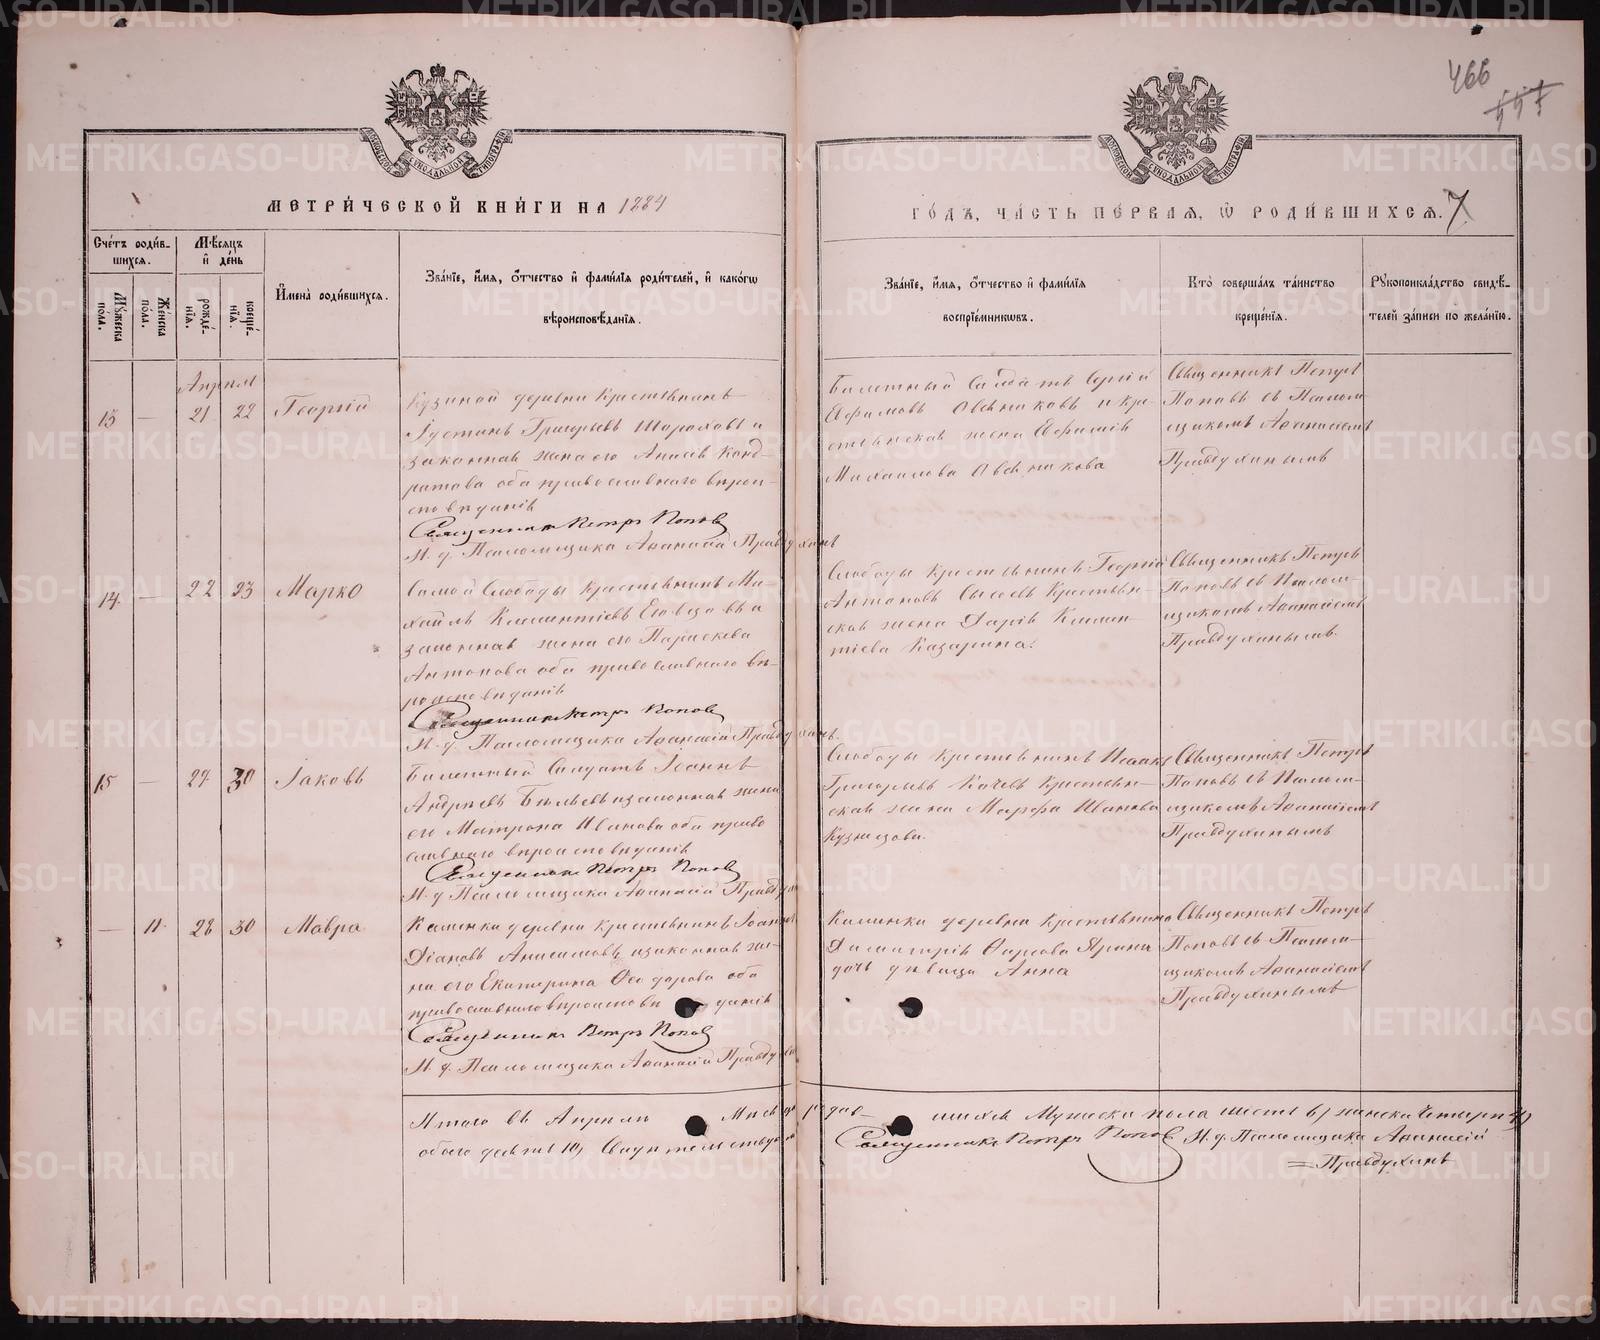 466
МЕТРИ́ЧЕСКОЙ КНИ́ГИ НА 1884
ГО́ДЪ, ЧА́СТЬ ПЕ́РВАЯ, Ѡ҆ РОДИ́ВШИХСЯ. 7
Сче́тъ роди́в-
шихся.
Мѣ́сяцъ
и҆ де́нь
И҆мена̀ роди́вшихся.
Зва́нїе, и҆́мя, ѻ҆́тчество и҆ фами́лїя роди́телей, и҆ како́гѡ
вѣроисповѣ́данїя.
Мꙋ́жеска
по́ла.
Же́нска
по́ла.
рожде́-
нїѧ.
креще́-
нїѧ.
Зва́нїе, и҆́мя, ѻ҆́тчество и҆ фами́лїя
воспрїе́мниковъ.
Кто̀ соверша́лъ та́инство
креще́нїя.
Рꙋкоприкла́дство свидѣ́-
телей за́писи по жела́нїю.
Апрѣль
13 — 21 22 Георгій
Кузиной деревни крестьянинъ
Іустинъ Григорьевъ Шороховъ и
законная жена его Анисія Конд-
ратова оба православнаго вѣрои-
сповѣданія
Священникъ Петръ Поповъ
И. д. Псаломщика Аѳанасій Правдухинъ
Билетный Солдатъ Сергій
Ефимовъ Овсянниковъ и кре-
стьянская жена Евфимія
Михаилова Овсянникова
Священникъ Петръ
Поповъ съ Псалом-
щикомъ Аѳанасіемъ
Правдухинымъ
14 — 22 23 Марко
Самой Слободы крестьянинъ Ми-
хаилъ Климентіевъ и
законная жена его Параскева
Антонова оба православнаго вѣ-
роисповѣданія
Священникъ Петръ Поповъ
И. д. Псаломщика Аѳанасій Правдухинъ
Слободы крестьянинъ Георгій
Антоновъ Сысоевъ крестьян-
ская жена Дарія Климен-
тіева Казарина.
Священникъ Петръ
Поповъ съ Псалом-
щикомъ Аѳанасіемъ
Правдухинымъ.
15 — 27 30 Іаковъ
Билетный Солдатъ Іоаннъ
Андреевъ Бѣляевъ и законная жена
его Матрона Иванова оба право-
славнаго вѣроисповѣданія
Священникъ Петръ Поповъ
И. д. Псаломщика Аѳанасій Правдухинъ
Слободы крестьянинъ Исаакъ
Григорьевъ Качевъ крестьян-
ская жена Марѳа Иванова
Кузнецова.
Священникъ Петръ
Поповъ съ Псалом-
щикомъ Аѳанасіемъ
Правдухинымъ
— 11 28 30 Мавра
Каменки деревни крестьянинъ Іоаннъ
Анисимовъ и законная же-
на его Екатерина Ѳеодорова оба
православнаго вѣроисповѣданія
Священникъ Петръ Поповъ
И. д. Псаломщика Аѳанасій Правдухинъ
Каменки деревни крестьянина
дочь дѣвица Анна
Священникъ Петръ
Поповъ съ Псалом-
щикомъ Аѳанасіемъ
Правдухинымъ
Итого въ Апрѣлѣ Мѣсяцѣ родив- шихся Мужеска пола шесть 6) женска четыре 4)
обоего десять 10) Свидѣтельствуютъ Священникъ Петръ Поповъ И. д. Псаломщика Аѳанасій
Правдухинъ
METRIKI.GASO-URAL.RU